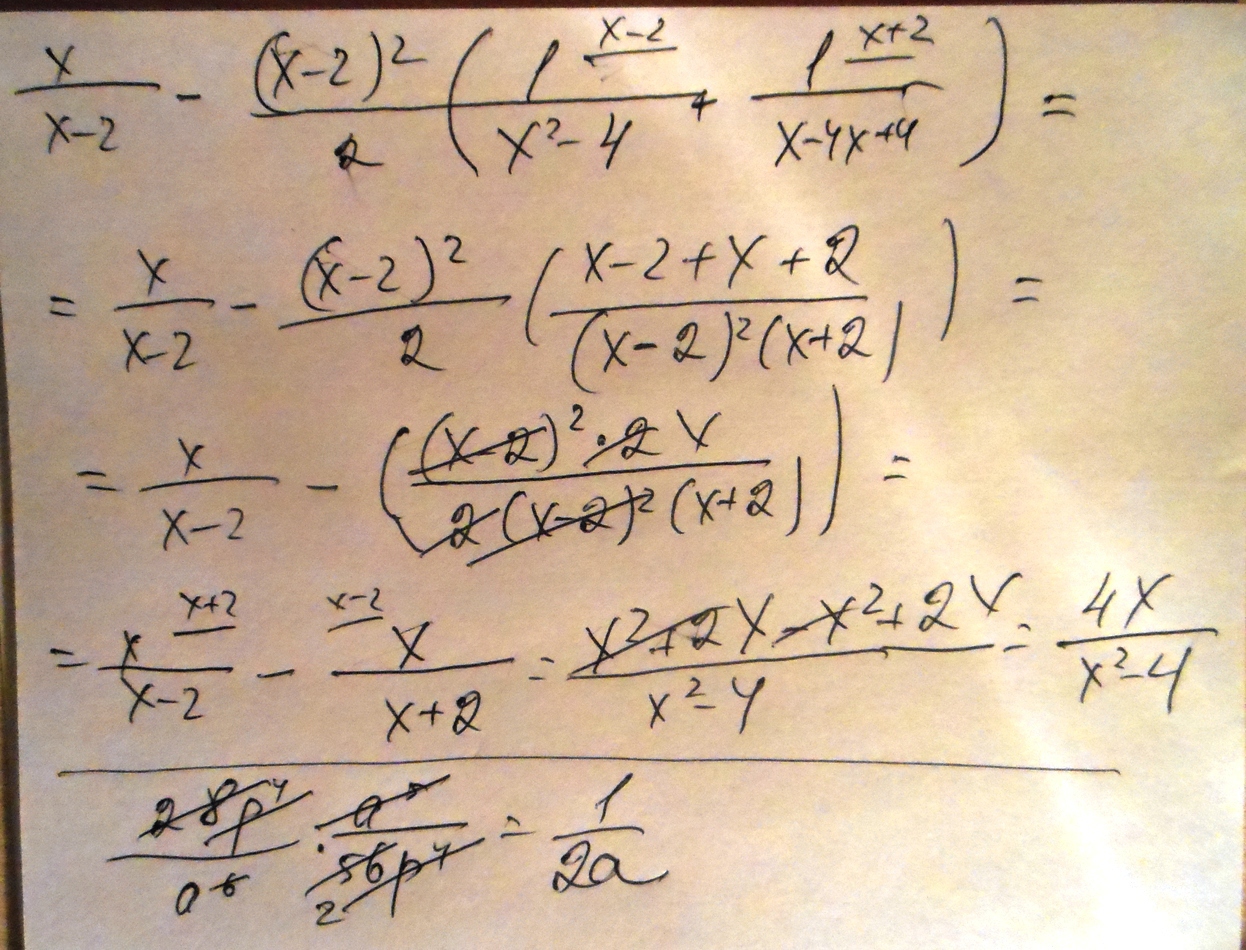 x/(x-2) - (x-2)²/2 (1/(x²-4) (x-2) + 1/(x-4x+4) (x+2)) =
= x/(x-2) - (x-2)²/2 ((x-2+x+2)/((x-2)²(x+2))) =
= x/(x-2) - ((x-2)²·2x/(2(x-2)²(x+2))) =
= x/(x-2) (x+2) - x/(x+2) (x-2) = (x²+2x-x²+2x)/(x²-4) = 4x/(x²-4)
28p⁴/a⁶ · a⁵/56p⁴ 2 = 1/2a